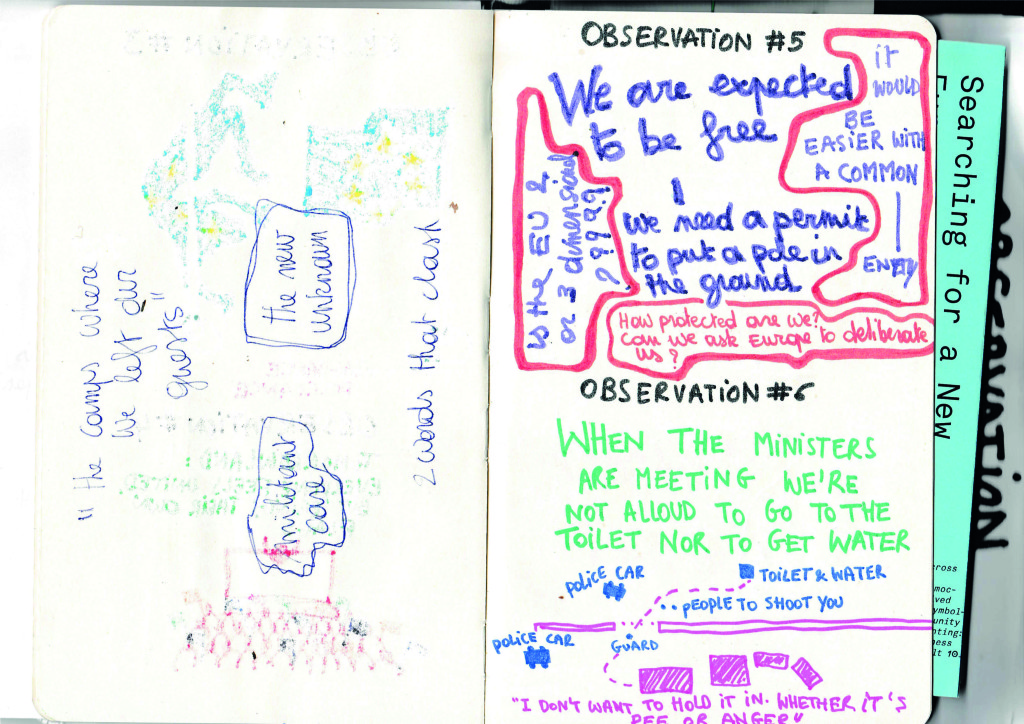 "the camps where
we left our
guests"
the new
unknown
militant
care
2 words that clash
OBSERVATION #5
We are expected
to be free
iT
WOULD
BE
EASIER WITH
A COMMON
ENEMY
is the EU 2
or 3 dimensional
? ? ? ? ?
we need a permit
to put a pole in
the ground
How protected are we?
can we ask Europe to deliberate
us?
OBSERVATION #6
WHEN THE MINISTERS
ARE MEETING WE'RE
NOT ALLOUD TO GO TO THE
TOILET NOR TO GET WATER
POLICE CAR
TOILET & WATER
PEOPLE TO SHOOT YOU
POLICE CAR
GUARD
"I DON'T WANT TO HOLD IT IN. WHETHER IT'S
PEE OR ANGER"
Searching for a New